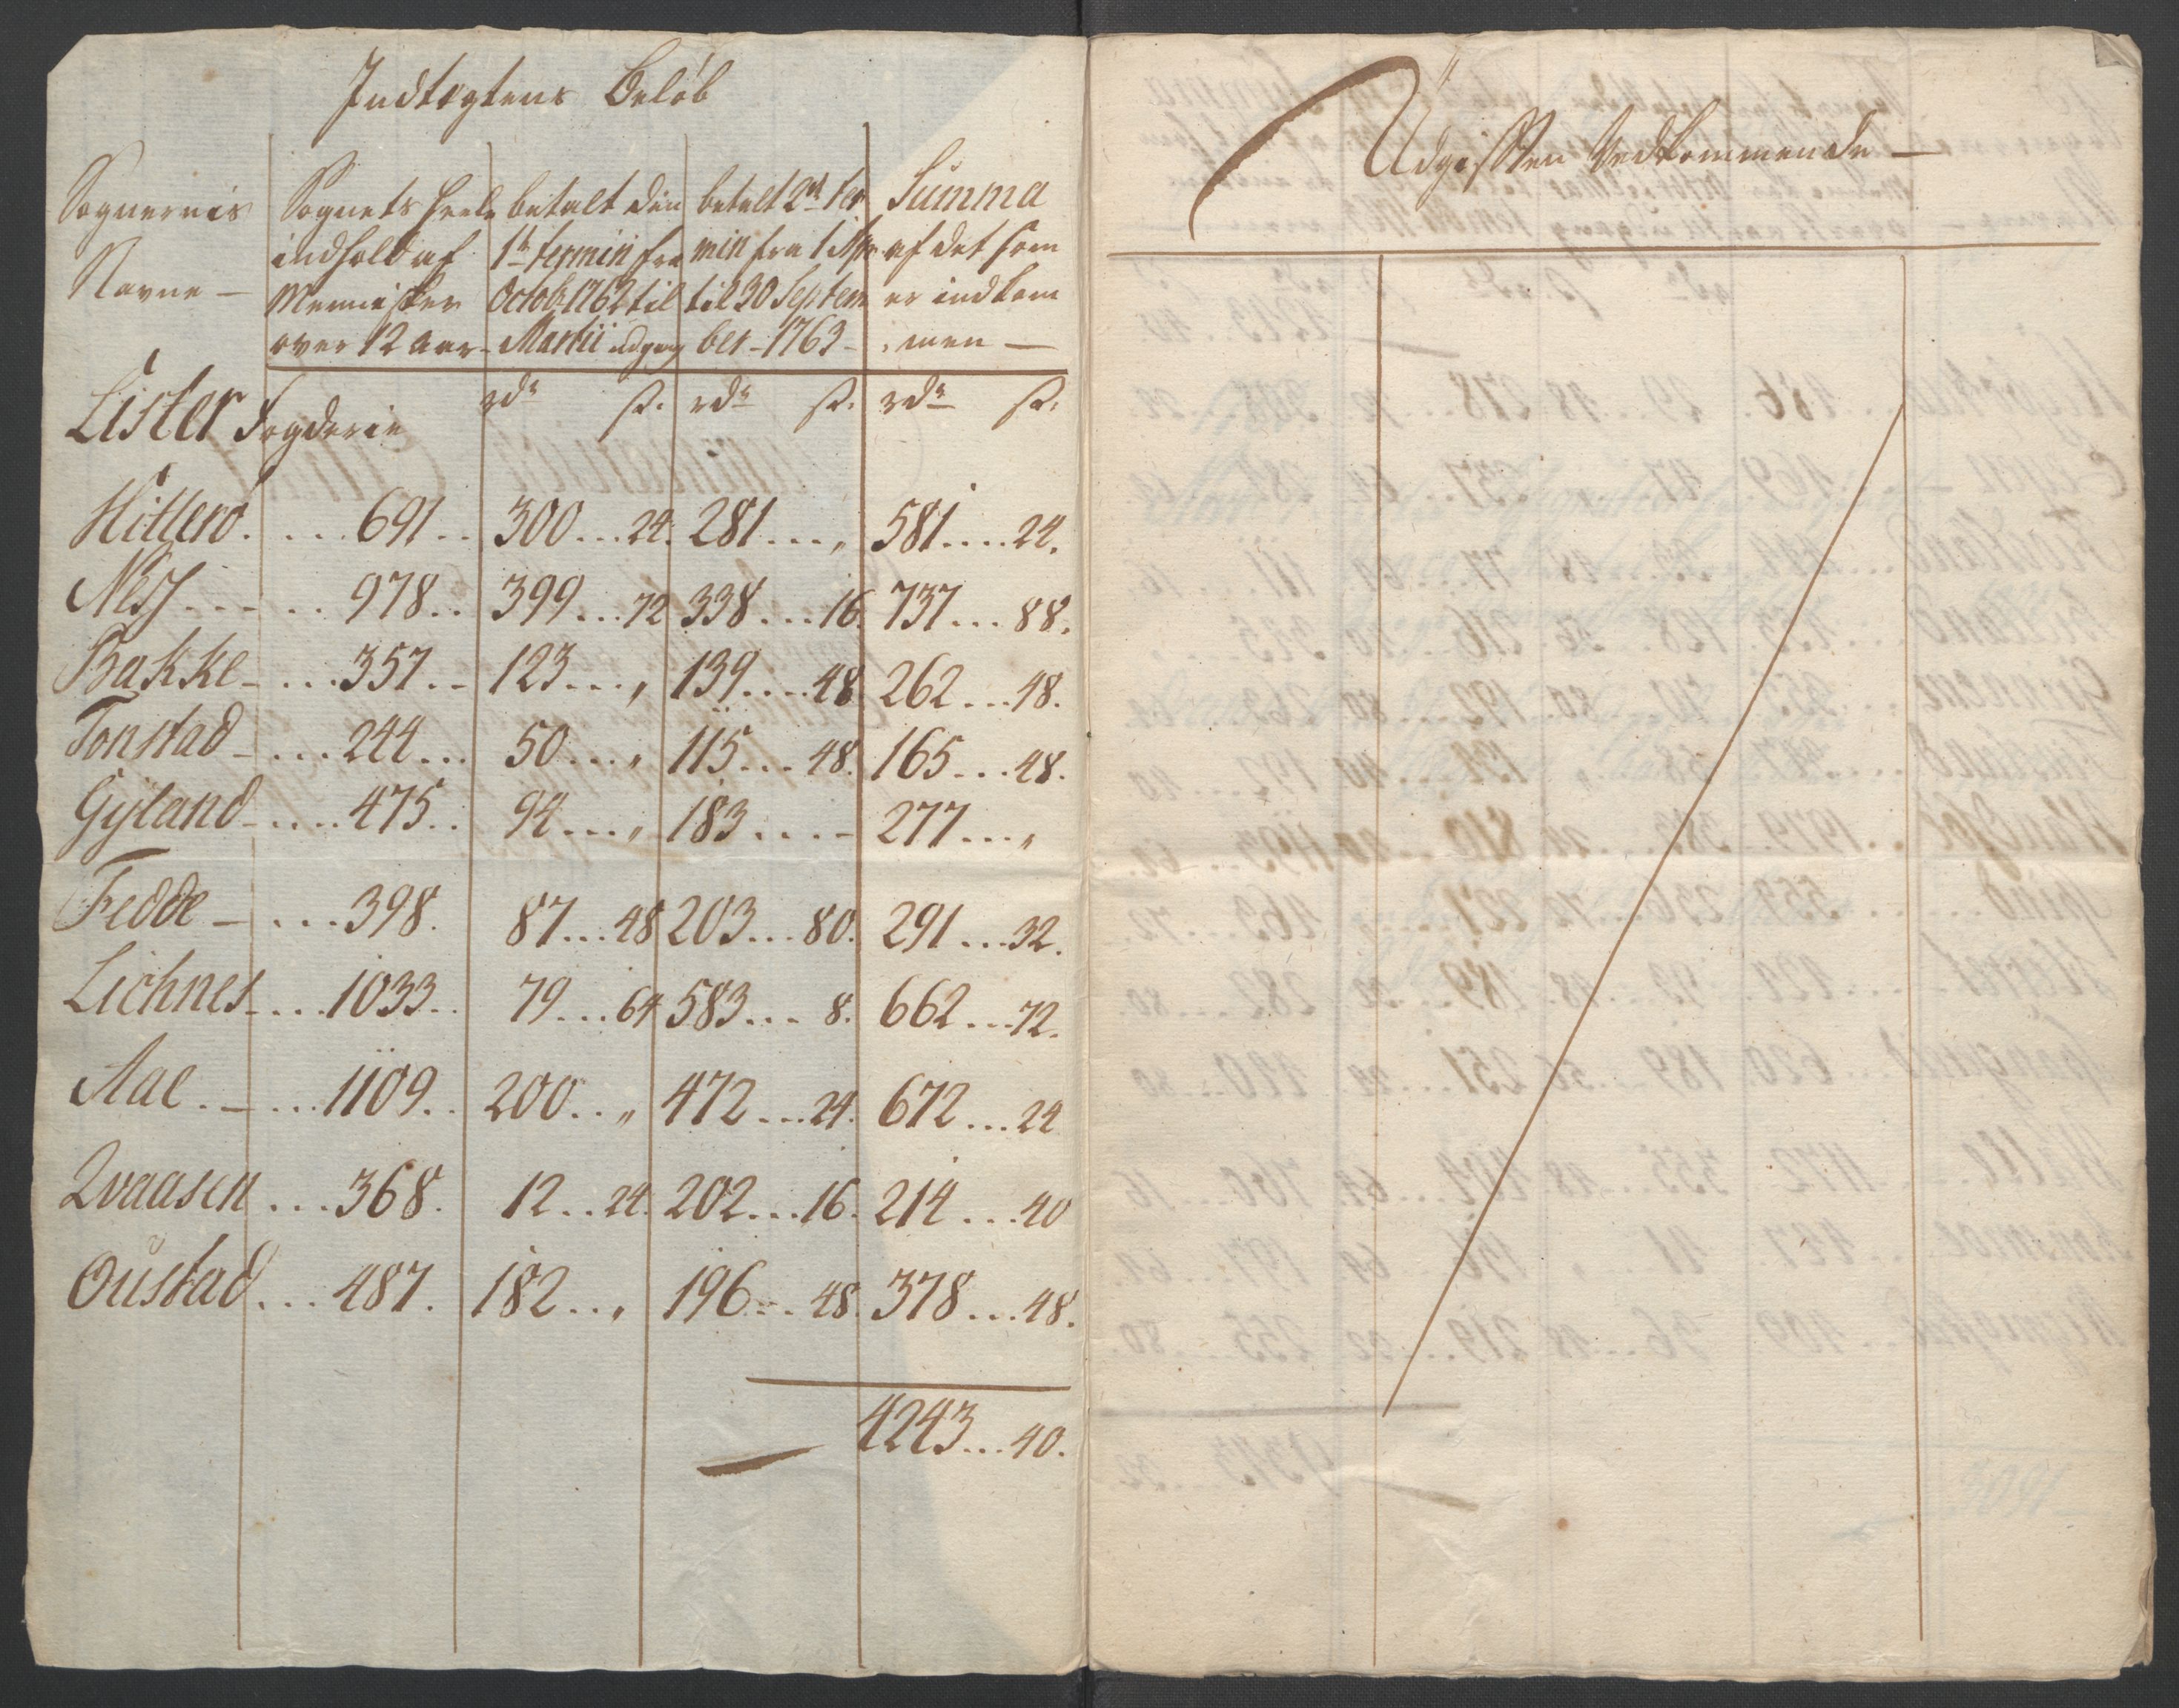 Indtægtens Beløb
Sognernis Navne —
Sognets heele indhold af Mennisker over 12 Aar -
betalt den 1te termin fra Octobr 1762 til Martii udgang
betalt 2den ter min fra 1 Apr. til 30 Septem ber - 1763 -
Summa af det som er indkom men —
Lister Fogderie rdr s. rdr s. rdr s.
Hitterø. ... 691.. 300...24. 281...„ 581....24.
Nesz - - - .. 978.. 399...72 338....16. 737...88.
Bakke - ....357.. 123...„ 139....48 262...48.
Tonstad - ...244... 50...„ 115...48. 165...48.
Gyland - ....475.. 94...„ 183....- 277...„
Fedde - ...398. 87...48 203...80. 291...32.
Lichnes ....1033.. 79...64 583...8. 662...72.
Aae . - ...1109.. 200..„ 472...24. 672...24
Qvaasen ...368. 12..24. 202...16. 214...40
Oustad ...487. 182..„ 196...48. 378...48.
4243...40.
Udgiften Vedkommende —